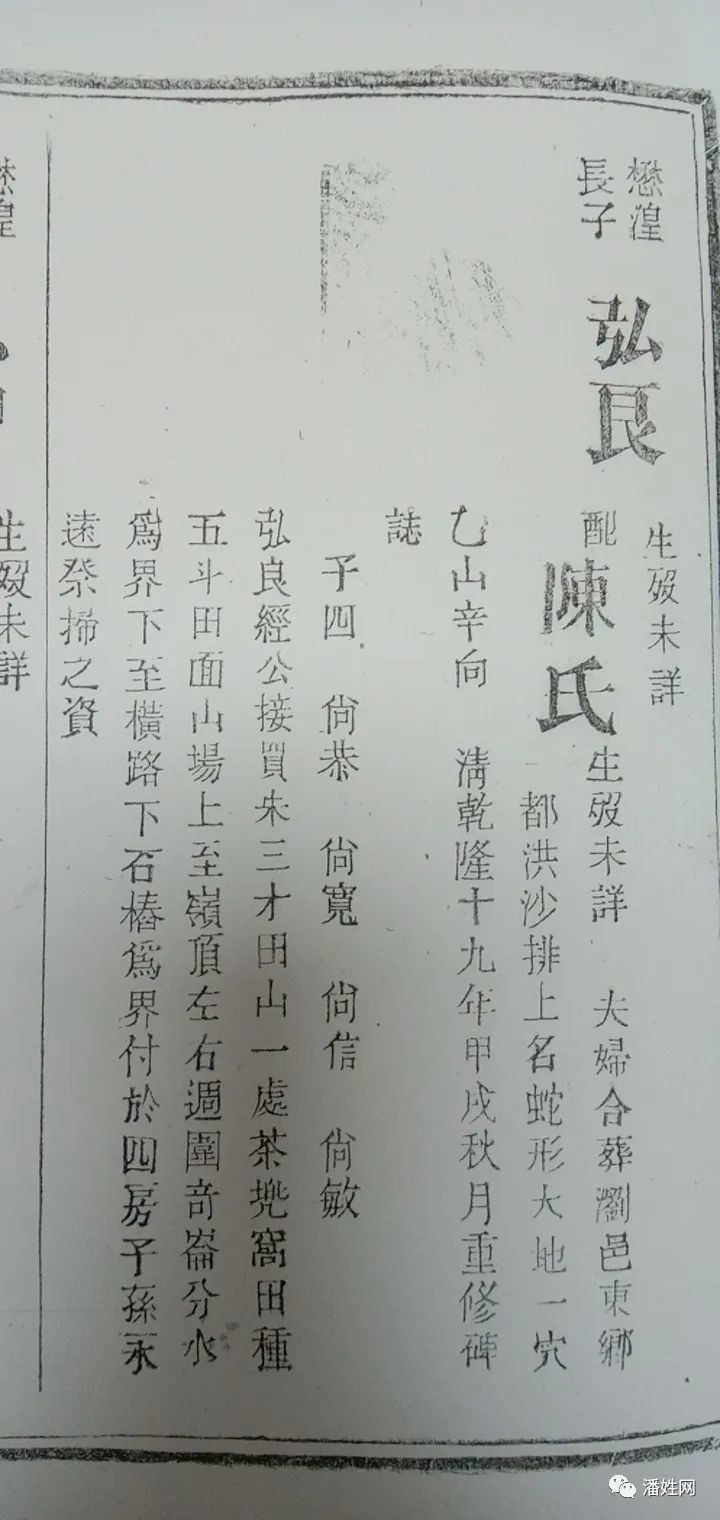 懋湟
長子
弘良
生歿未詳
配陳氏生歿未詳 夫婦合葬瀏邑東鄉
都洪沙排上名蛇形大地一穴
乙山辛向 淸乾隆十九年甲戌秋月重修碑
誌
子四 尙恭 尙寬 尙信 尙敏
弘良經公接買朱三才田山一處茶兠窩田種
五斗田面山場上至嶺頂左右週圍竒崙分水
爲界下至橫路下石樁爲界付於四房子孫永
遠祭掃之資
懋湟
生歿未詳
潘姓网